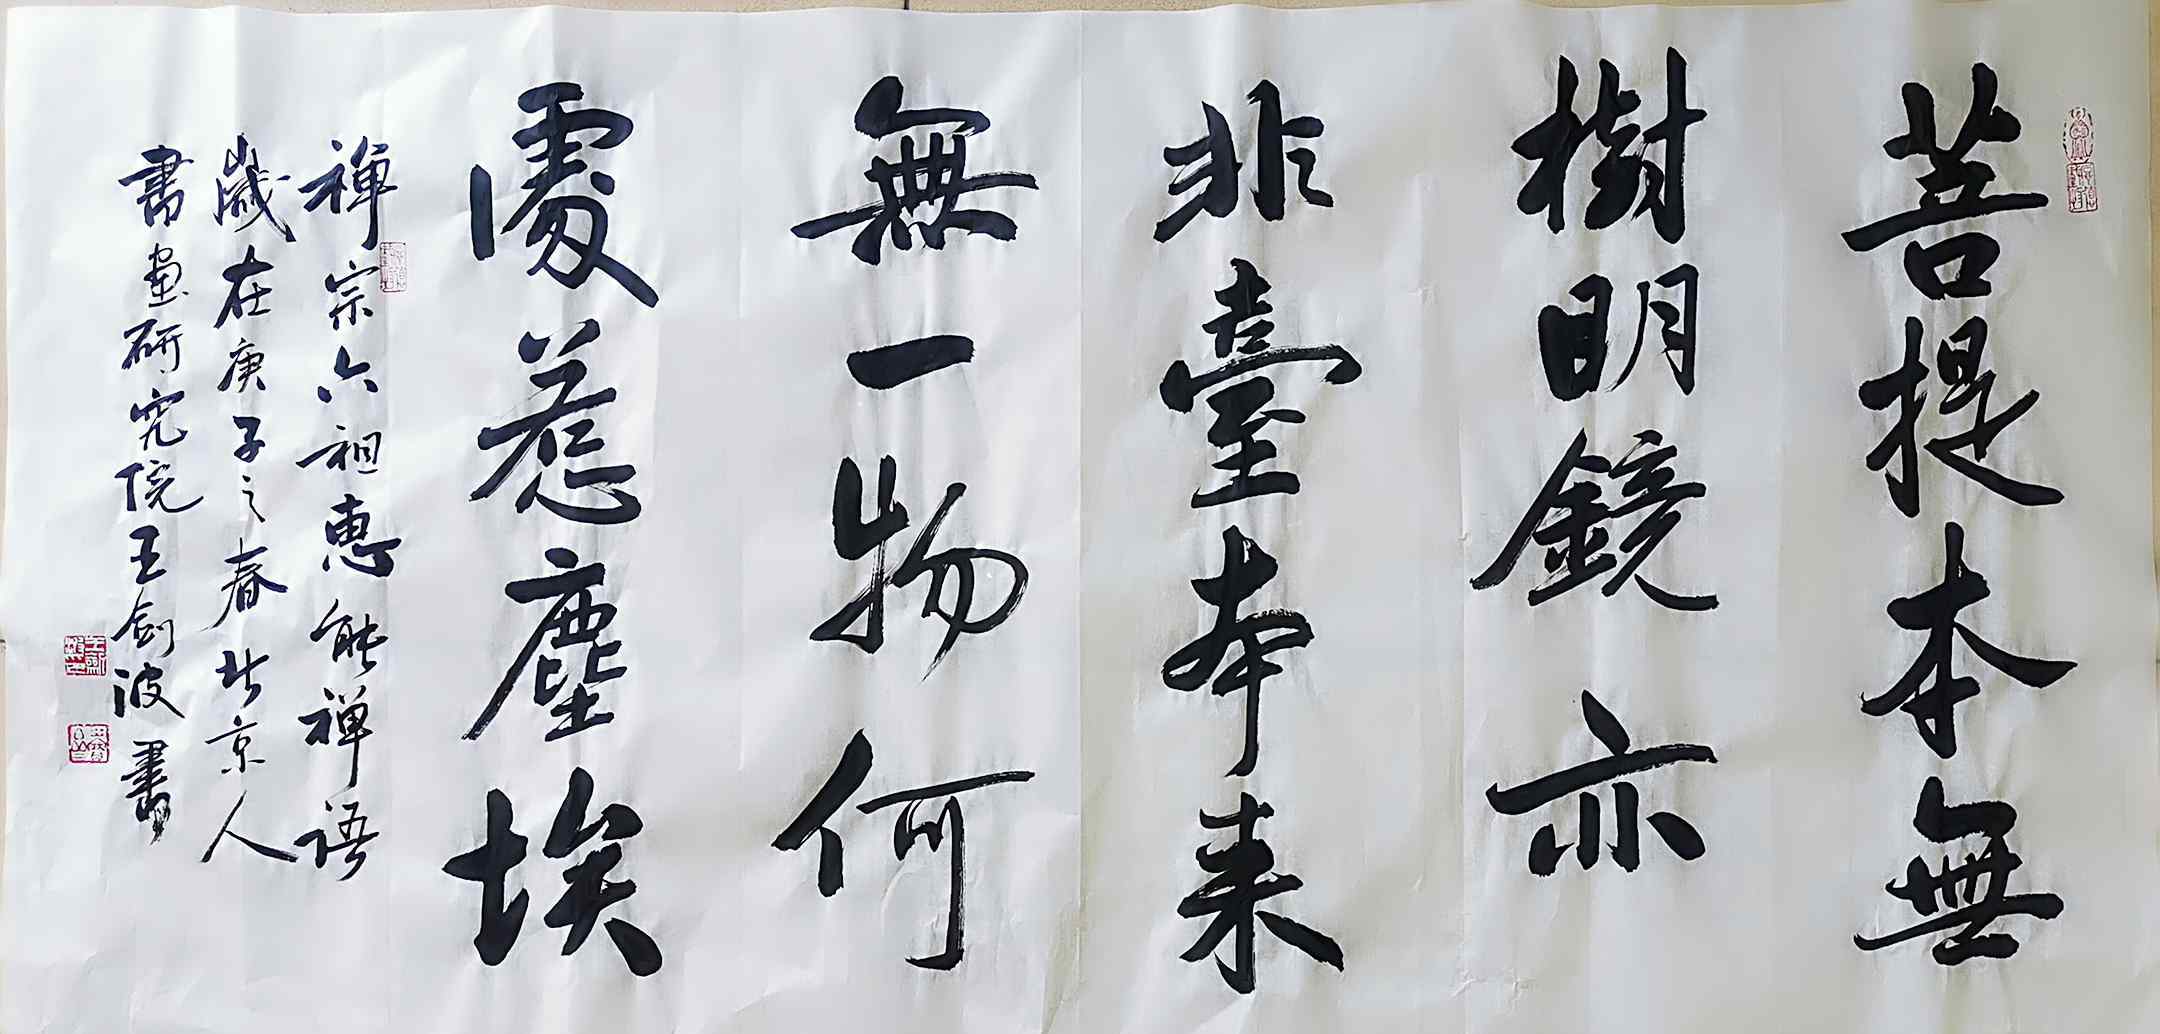 菩提本無
樹明鏡亦
非臺本来
無一物何
處惹塵埃
禅宗六祖惠能禅语
歲在庚子之春北京人
書畫研究院王剑波書